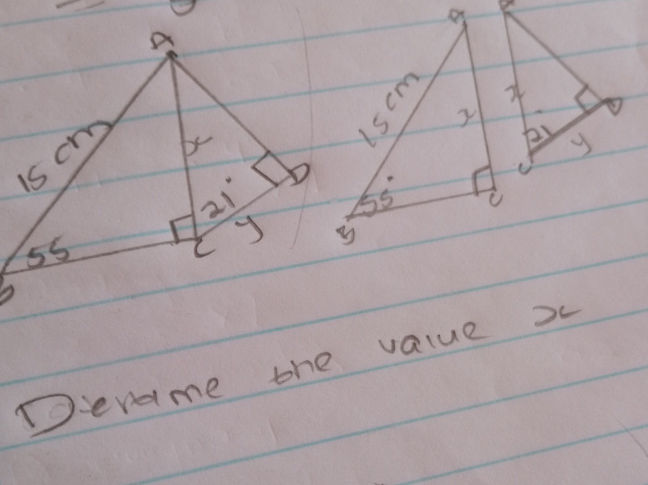 A
15 cm
x
21°
D
55
C
y
B
A
15 cm
x
55°
C
B
x
21°
D
C
y
Dterame the value x